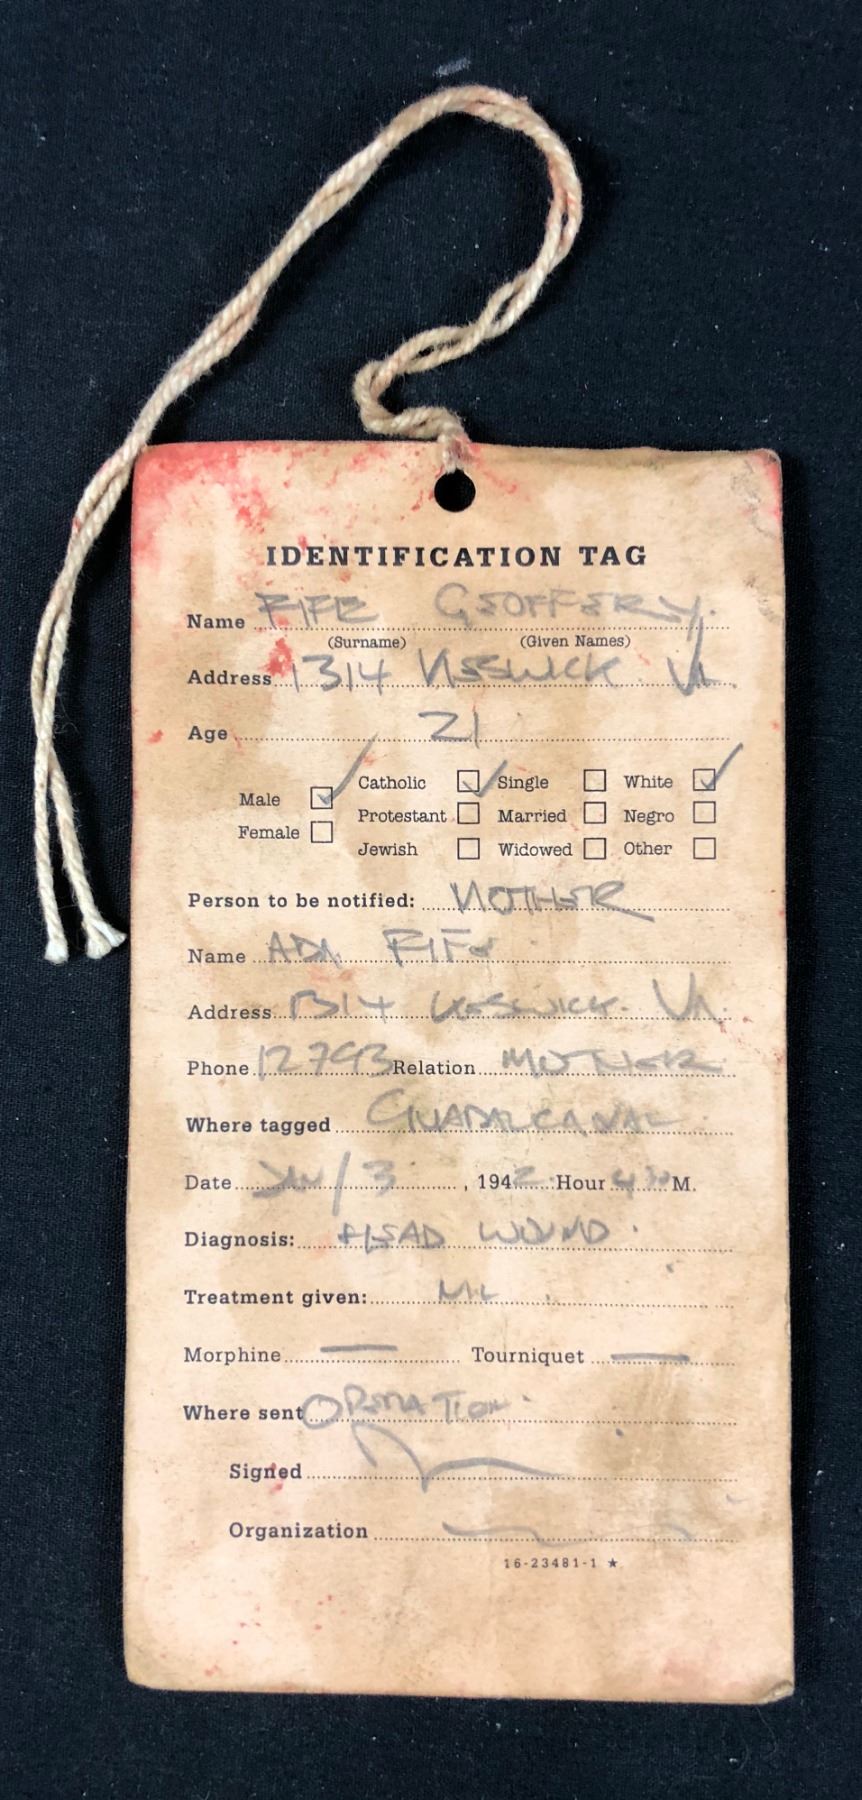 IDENTIFICATION TAG
Name FIFE GEOFFERY.
(Surname) (Given Names)
Address 1314 KESSWICK VA.
Age 21
Male Catholic Single White
Protestant Married Negro
Female Jewish Widowed Other
Person to be notified: MOTHER
Name ADA FIFE
Address 1314 KESSWICK. VA.
Phone 12793 Relation MOTHER
Where tagged GUADALCANAL
Date JAN/3, 1942 Hour M.
Diagnosis: HEAD WOUND.
Treatment given:
Morphine — Tourniquet —
Where sent OPERATION.
Signed
Organization
16-23481-1 ★